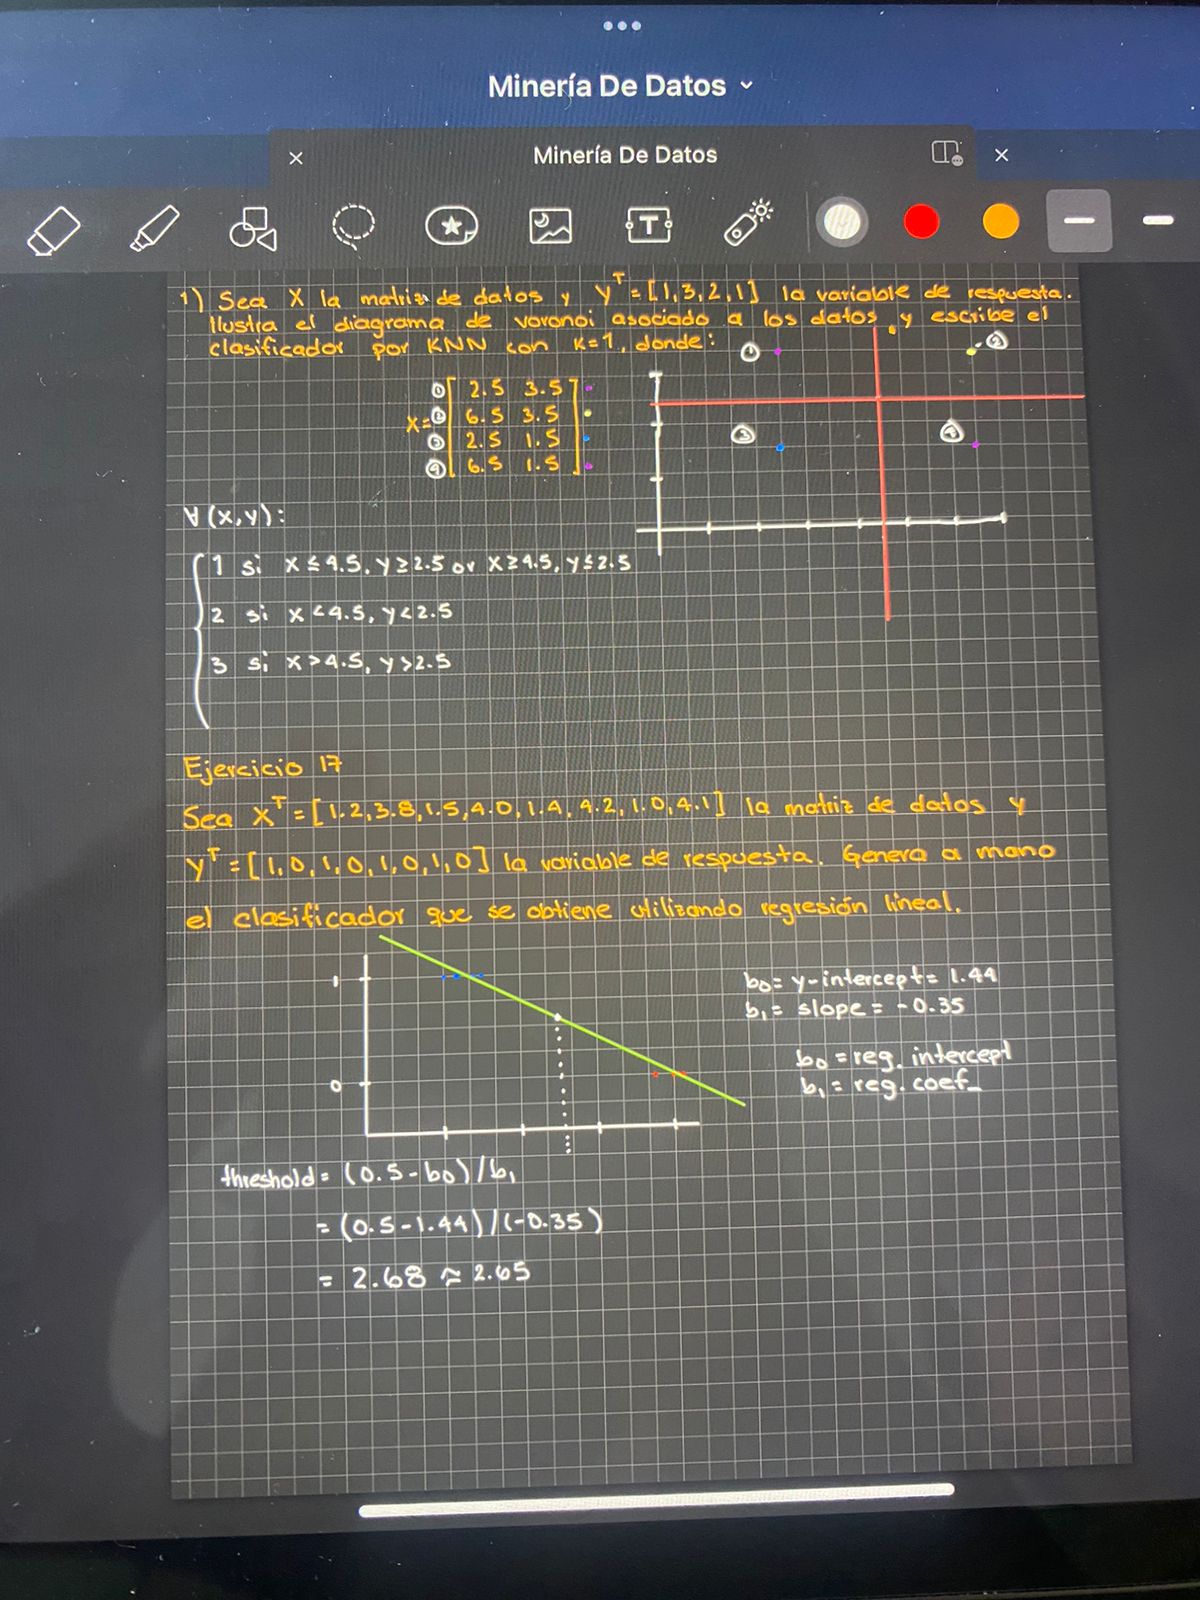 Minería De Datos
Minería De Datos
T
1) Sea X la matriz de datos y Y^T = [1,3,2,1] la variable de respuesta.
Ilustra el diagrama de voronoi asociado a los datos y escribe el
clasificador por KNN con K=1, donde:
① ②
① [ 2.5 3.5 ]
X= ② 6.5 3.5
③ 2.5 1.5
④ 6.5 1.5
③ ④
∀ (x,y):
1 si x ≤ 4.5, y ≥ 2.5 or x ≥ 4.5, y ≤ 2.5
2 si x < 4.5, y < 2.5
3 si x > 4.5, y > 2.5
Ejercicio 17
Sea X^T = [1.2,3.8,1.5,4.0,1.4,4.2,1.0,4.1] la matriz de datos y
Y^T = [1,0,1,0,1,0,1,0] la variable de respuesta. Genera a mano
el clasificador que se obtiene utilizando regresión lineal.
1
0
b0 = y-intercept = 1.44
b1 = slope = -0.35
b0 = reg. intercept
b1 = reg. coef_
threshold = (0.5 - b0) / b1
= (0.5 - 1.44) / (-0.35)
= 2.68 ≈ 2.65